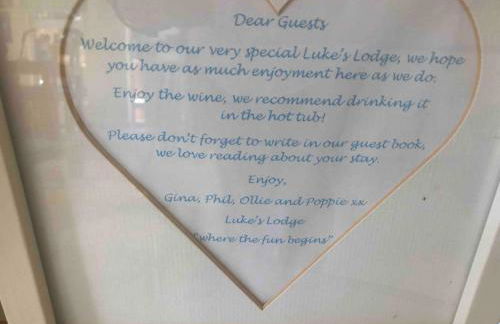 Dear Guests
Welcome to our very special Luke's Lodge, we hope
you have as much enjoyment here as we do.
Enjoy the wine, we recommend drinking it
in the hot tub!
Please don't forget to write in our guest book,
we love reading about your stay.
Enjoy,
Gina, Phil, Ollie and Poppie xx
Luke's Lodge
"where the fun begins"